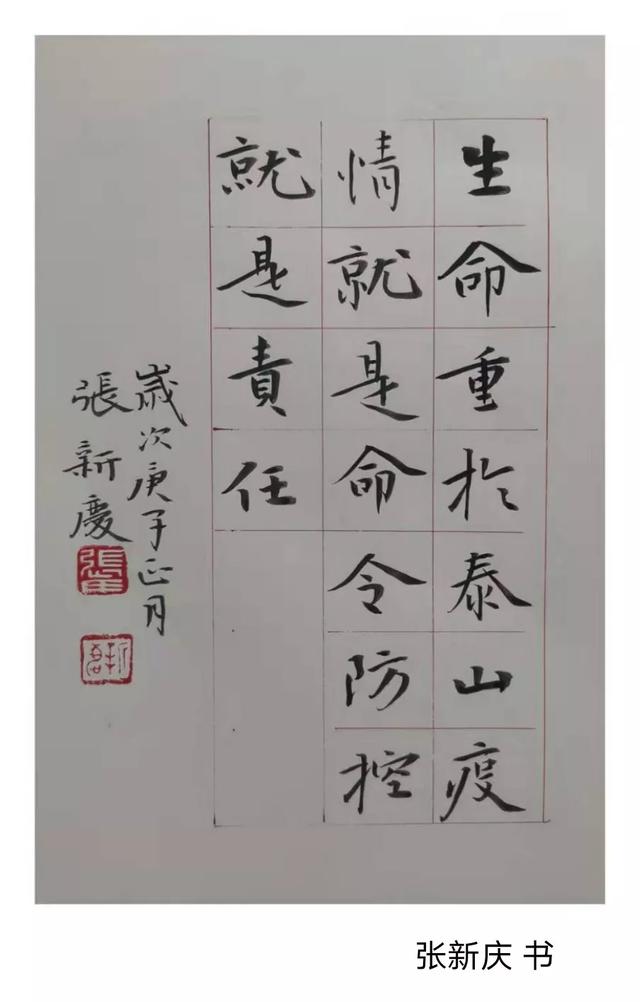 生命重於泰山疫
情就是命令防控
就是責任
歲次庚子正月
張新慶
张新庆 书